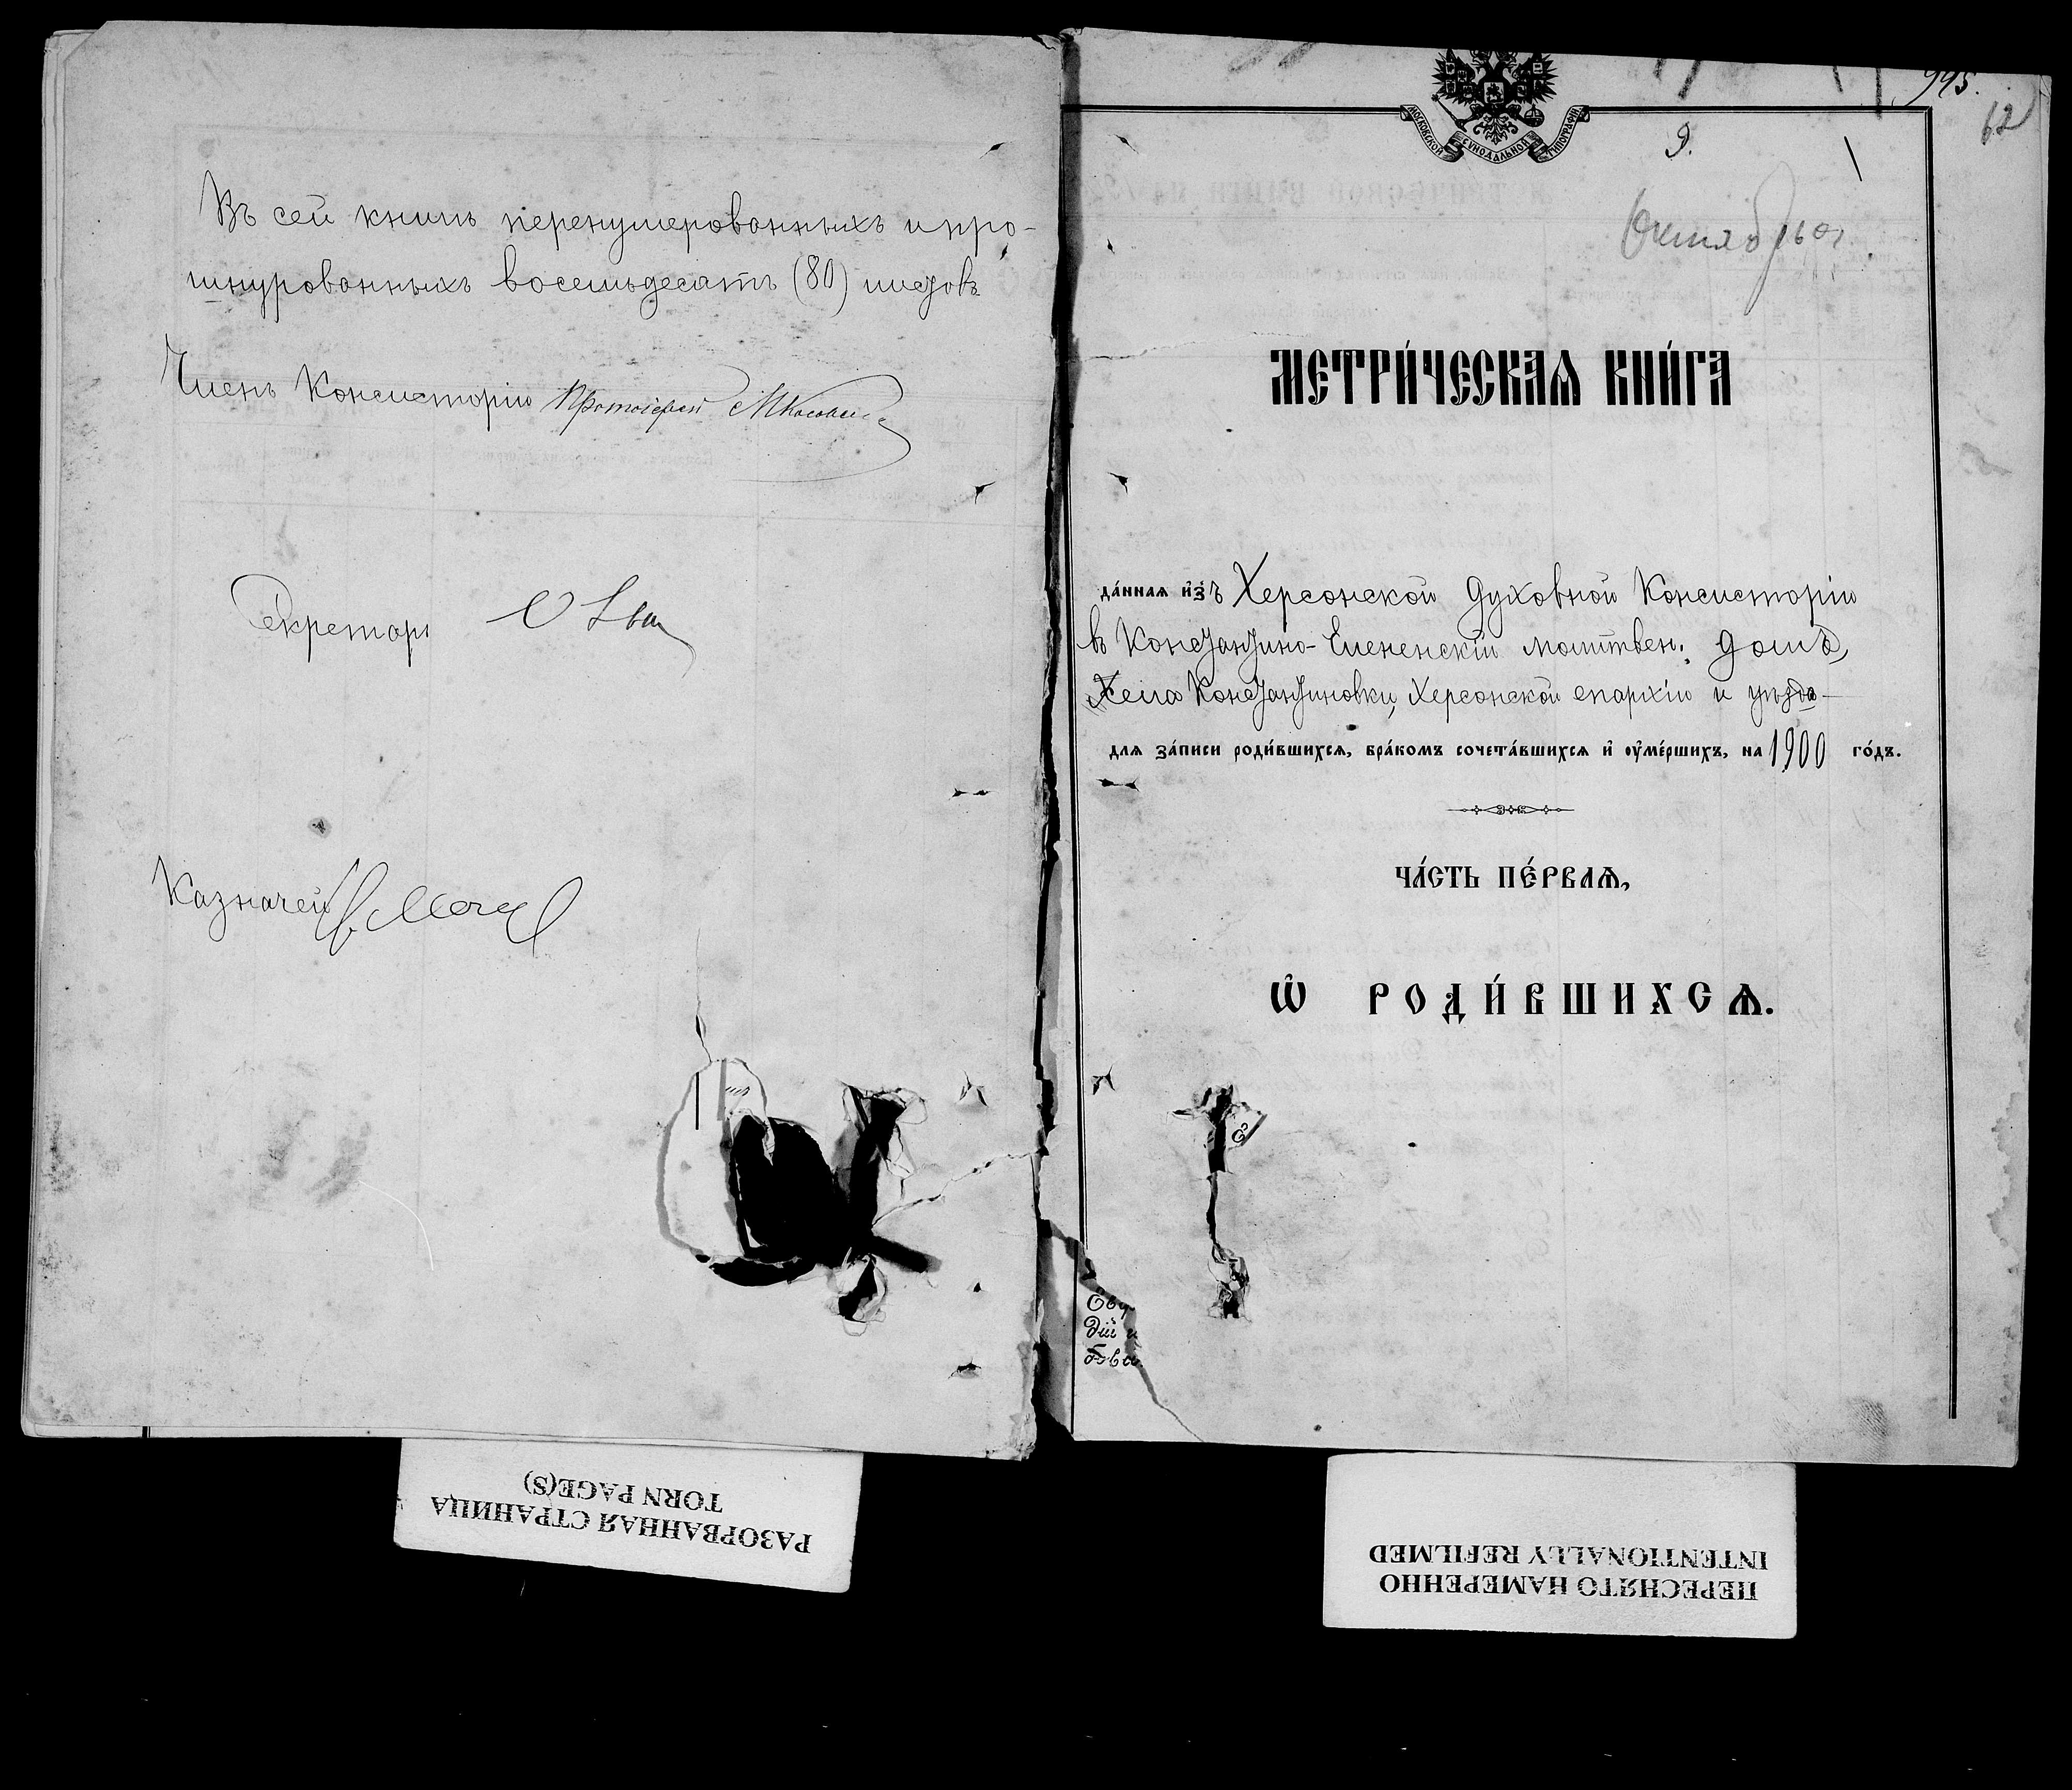 Въ сей книгѣ перенумерованныхъ и про-
шнурованныхъ восемьдесятъ (80) листовъ
Членъ Консисторіи Протоіерей
Секретарь
Казначей
МОСКОВСКОЙ СѴНОДАЛЬНОЙ ТИПОГРАФІИ
995.
62
9.
Октябрь
МЕТРИ́ЧЕСКАѦ КНИ́ГА
да́ннаѧ и҆зъ Херсонской Духовной Консисторіи
въ Константино-Елененскій молитвен. домъ,
села Константиновки, Херсонской епархіи и уѣзда
для за́писи роди́вшихсѧ, бра́комъ сочета́вшихсѧ и҆ ᲂу҆ме́ршихъ, на 1900 го́дъ.
ЧА́СТЬ ПЕ́РВАѦ,
Ѽ РОДИ́ВШИХСѦ.
дій и
РАЗОРВАННАЯ СТРАНИЦА
TORN PAGE(S)
ПЕРЕСНЯТО НАМЕРЕННО
INTENTIONALLY REFILMED